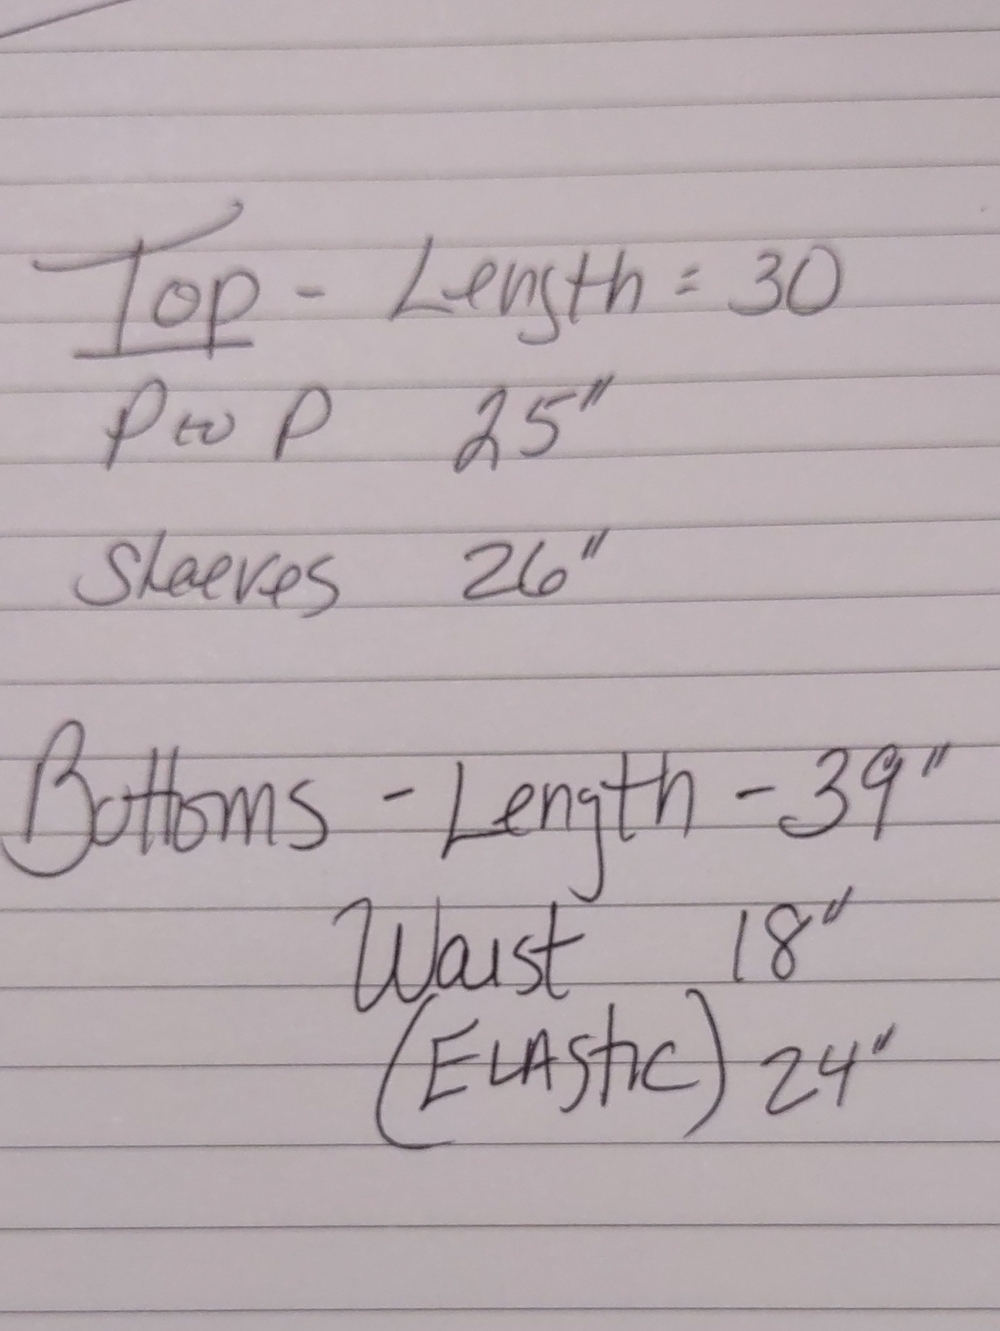 Top - Length = 30
P to P 25"
Sleeves 26"
Bottoms - Length - 39"
Waist 18"
(ELAStic) 24"